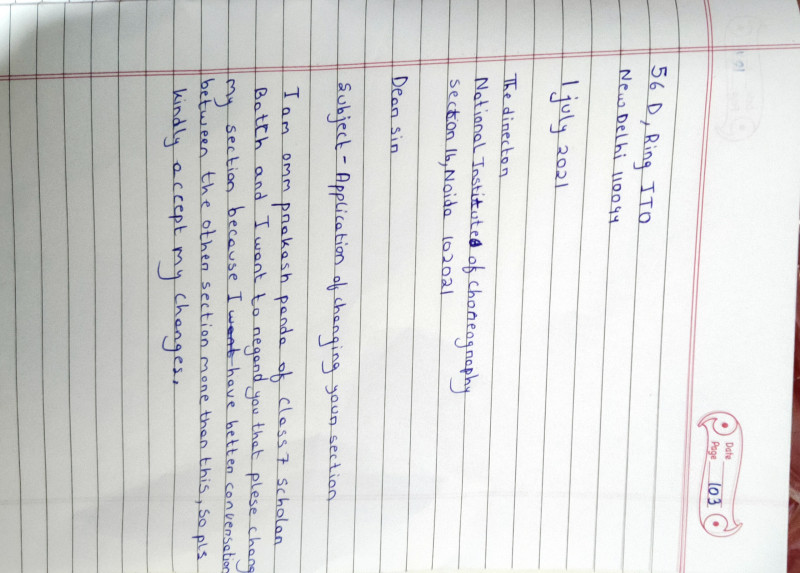 Date
Page 103
56 D, Ring ITO
New Delhi 110044
1 july 2021
The director
National Institute of choreography
section 16, Noida 102021
Dear sir
Subject - Application of changing your section
I am omm prakash panda of class 7 scholar
Batch and I want to regard you that plese chang
my section because I want have better conversation
between the other section more than this, so pls
kindly accept my changes.